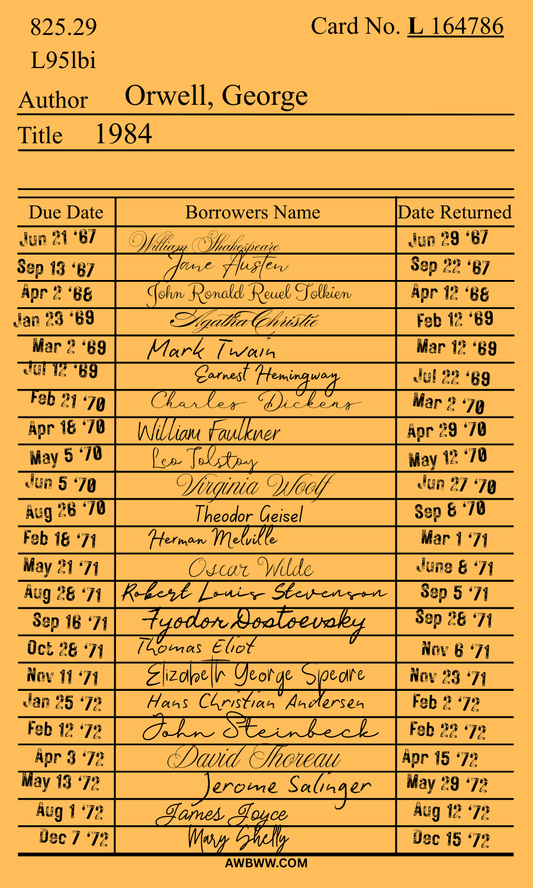 825.29
Card No. L 164786
L95lbi
Author Orwell, George
Title 1984
Due Date Borrowers Name Date Returned
Jun 21 '67 William Shakespeare Jun 29 '67
Sep 13 '67 Jane Austen Sep 22 '67
Apr 2 '68 John Ronald Reuel Tolkien Apr 12 '68
Jan 23 '69 Agatha Christie Feb 12 '69
Mar 2 '69 Mark Twain Mar 12 '69
Jul 12 '69 Earnest Hemingway Jul 22 '69
Feb 21 '70 Charles Dickens Mar 2 '70
Apr 18 '70 William Faulkner Apr 29 '70
May 5 '70 Leo Tolstoy May 12 '70
Jun 5 '70 Virginia Woolf Jun 27 '70
Aug 26 '70 Theodor Geisel Sep 8 '70
Feb 18 '71 Herman Melville Mar 1 '71
May 21 '71 Oscar Wilde June 8 '71
Aug 28 '71 Robert Louis Stevenson Sep 5 '71
Sep 16 '71 Fyodor Dostoevsky Sep 28 '71
Oct 28 '71 Thomas Eliot Nov 6 '71
Nov 11 '71 Elizabeth George Speare Nov 23 '71
Jan 25 '72 Hans Christian Andersen Feb 2 '72
Feb 12 '72 John Steinbeck Feb 22 '72
Apr 3 '72 David Thoreau Apr 15 '72
May 13 '72 Jerome Salinger May 29 '72
Aug 1 '72 James Joyce Aug 12 '72
Dec 7 '72 Mary Shelly Dec 15 '72
AWBWW.COM